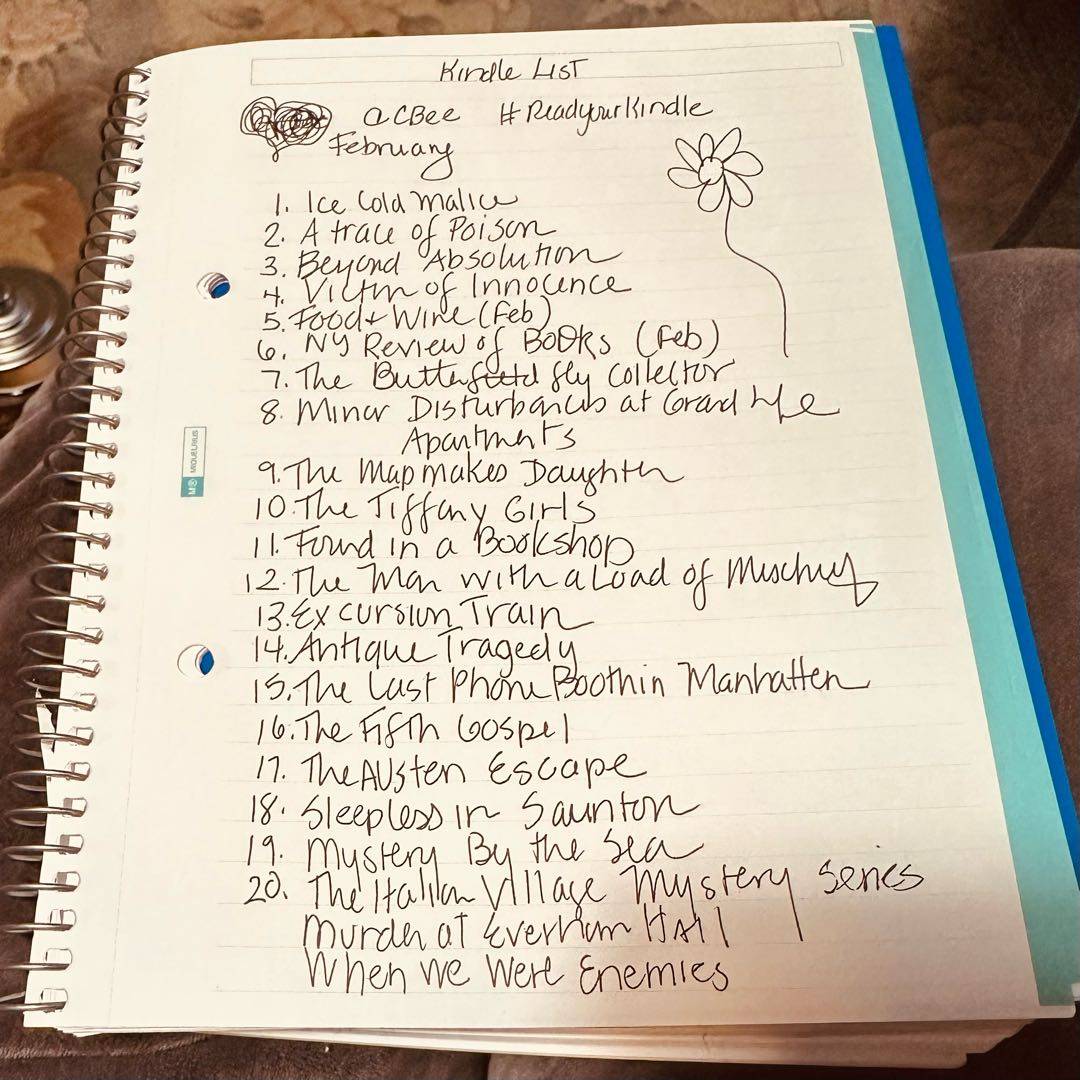 Kindle List
@CBee #Readyourkindle
February
1. Ice Cold Malice
2. A trace of Poison
3. Beyond Absolution
4. Victim of Innocence
5. Food + Wine (Feb)
6. NY Review of Books (Feb)
7. The Butterfly Collector
8. Minor Disturbances at Grand Life
Apartments
9. The Mapmakes Daughter
10. The Tiffany Girls
11. Found in a Bookshop
12. The Man with a Load of Mischief
13. Excursion Train
14. Antique Tragedy
15. The Last Phone Booth in Manhatten
16. The Fifth Gospel
17. The Austen Escape
18. Sleepless in Saunton
19. Mystery By the Sea
20. The Italian Village Mystery Series
Murder at Everham Hall
When We Were Enemies
MIQUELRIUS